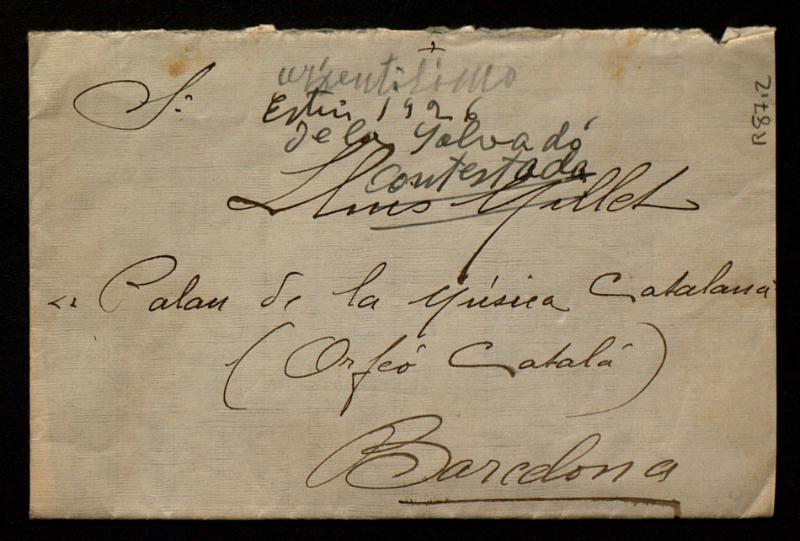 urgentísimo
Sr. Estiu 1926
de la Salvadó
contestada
Lluis Millet
"Palau de la Música Catalana
(Orfeó Catalá)
Barcelona